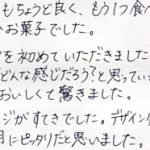 もちょうど良く、もう1つ食べ
いお菓子でした。
を初めていただきました
どんな感じだろう？と思ってい
おいしくて驚きました。
ジがすてきでした。デザイン
用にピッタリだと思いました。